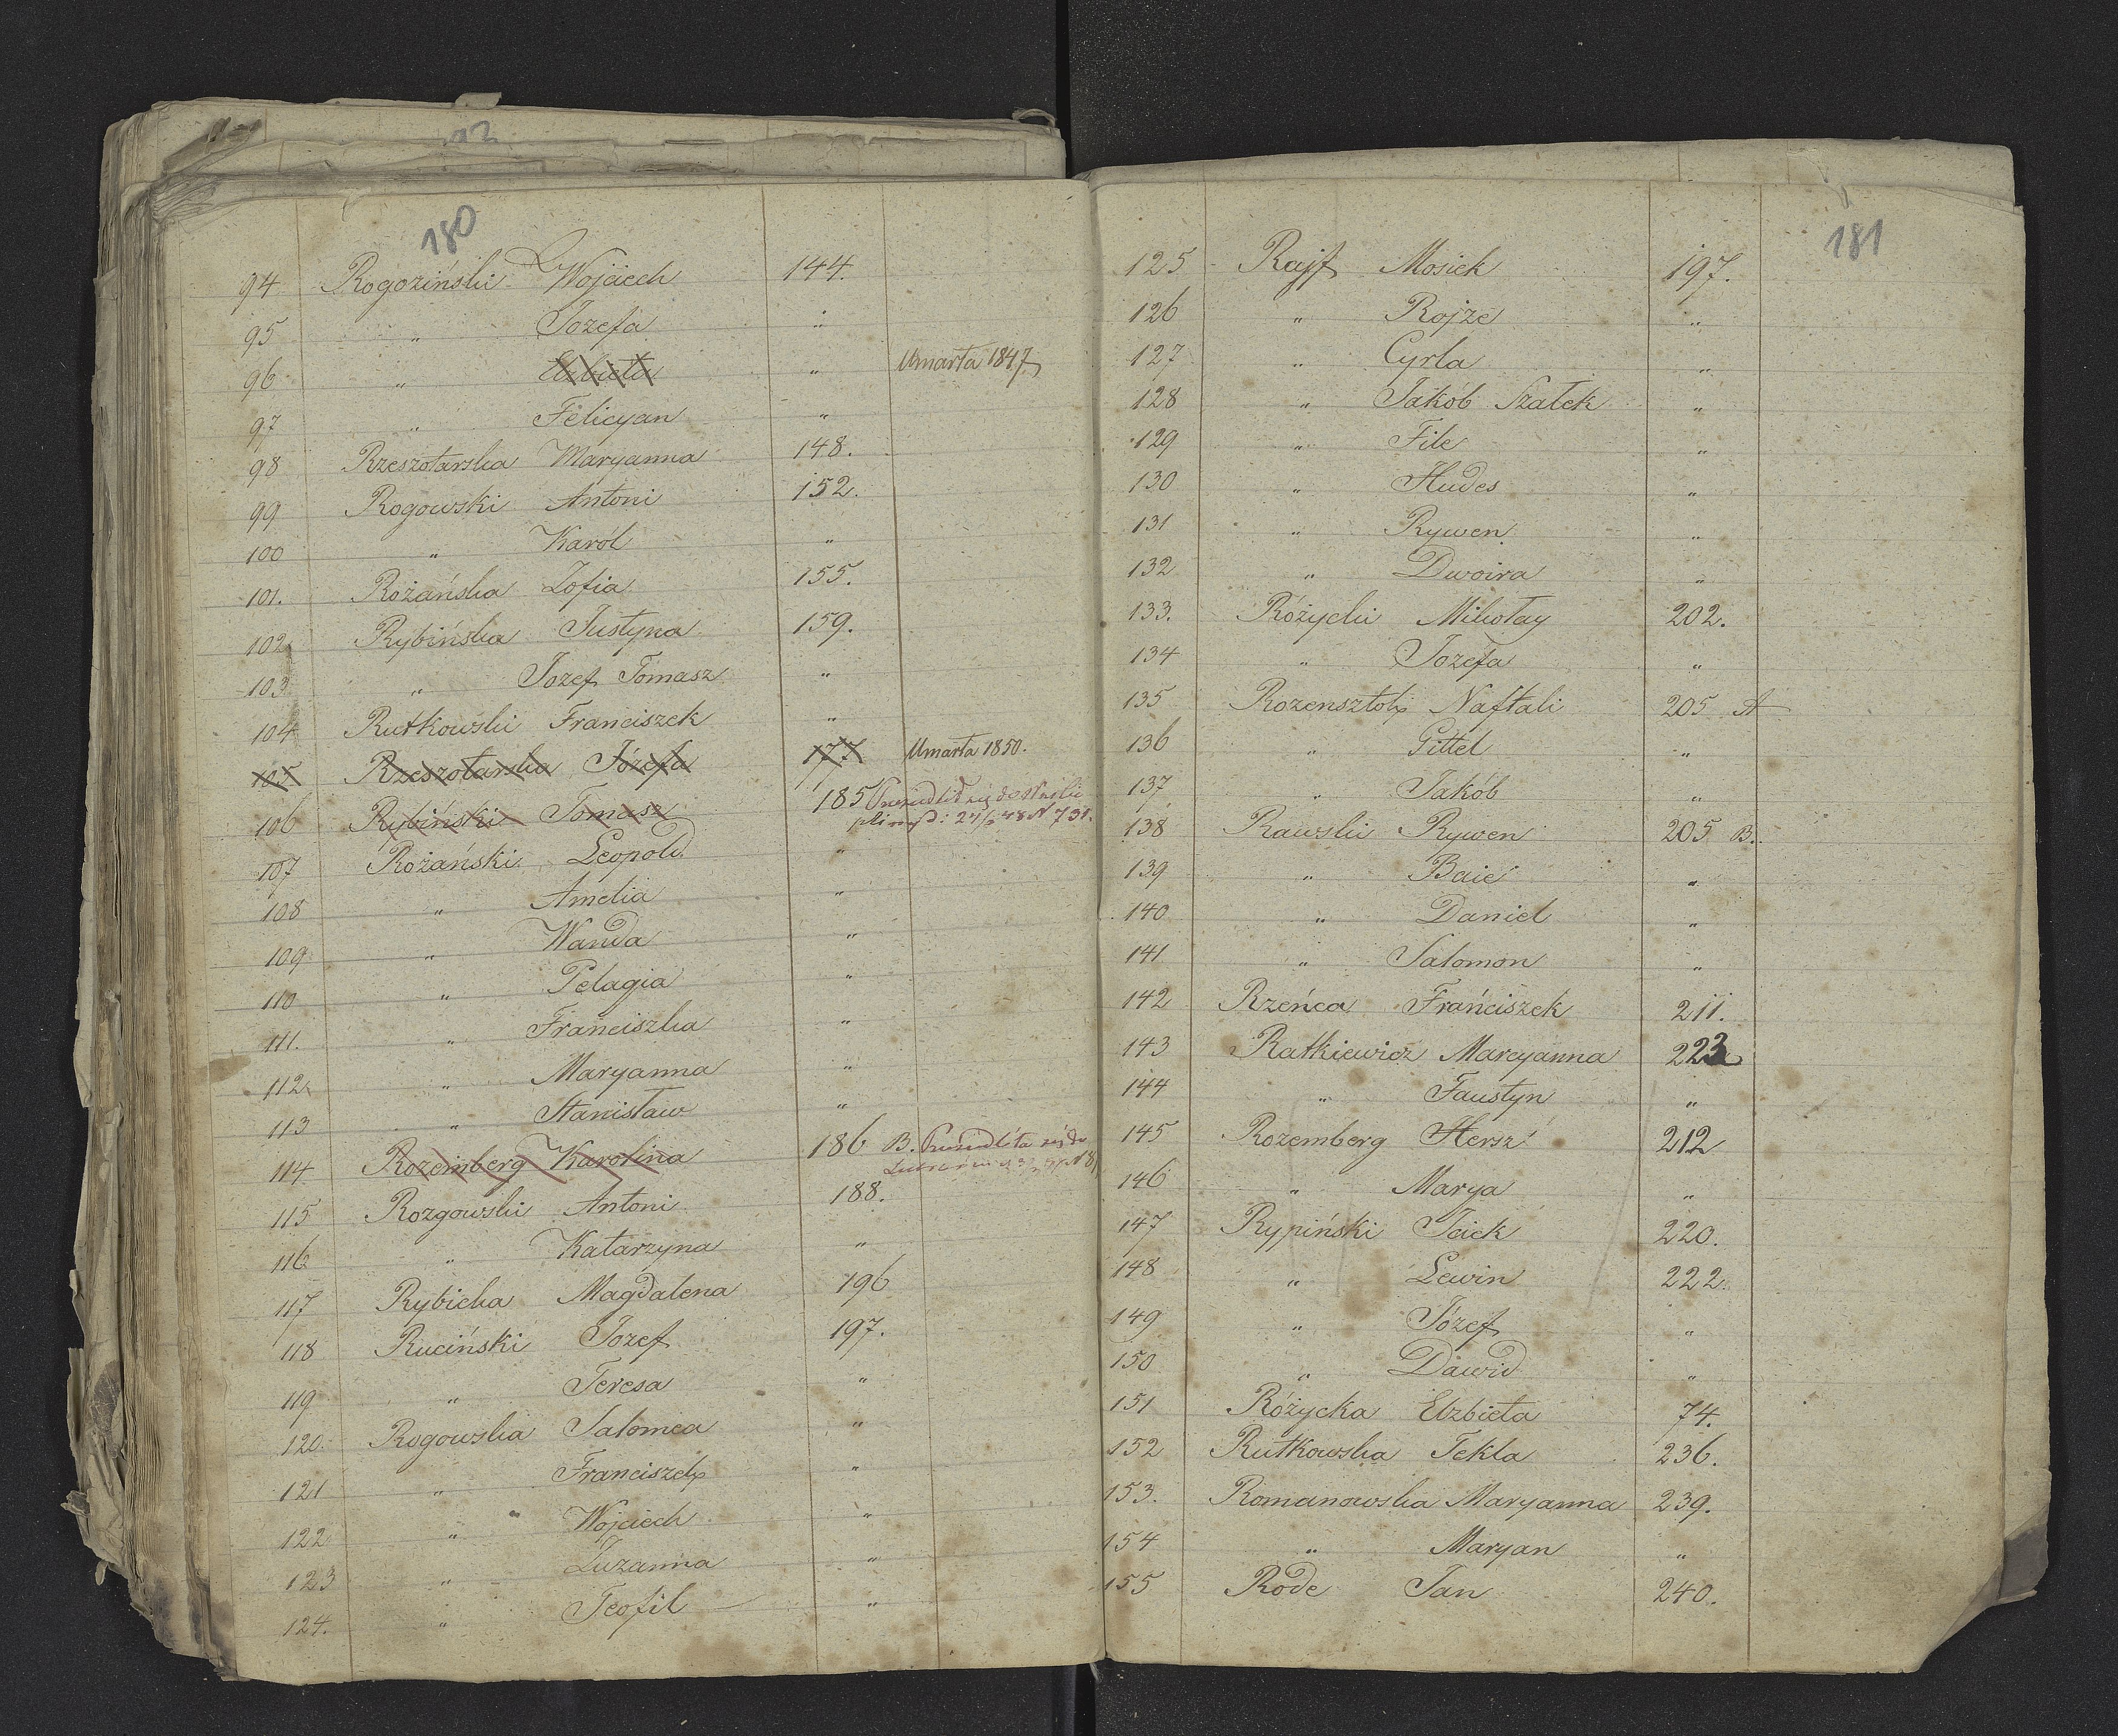 93
180
94 Rogoziński Wojciech 144.
95 " Jozefa "
96 " Elzbieta " Umarła 1847
97 " Felicyan "
98 Rzeszotarska Maryanna 148.
99 Rogowski Antoni 152.
100 " Karól "
101. Rożańska Zofia 155.
102 Rybińska Justyna 159.
103 " Jozef Tomasz "
104 Rutkowski Franciszek "
105 Rzeszotarska Józefa 177 Umarła 1850.
106 Rybiński Tomasz 185 się do
48 N 731.
107 Rożański Leopold "
108 " Amelia "
109 " Wanda "
110 " Pelagia "
111. " Franciszka "
112 " Maryanna "
113 " Stanisław "
114 Rozemberg Karolina 186 B. się do
115 Rozgowski Antoni 188.
116 " Katarzyna "
117 Rybicka Magdalena 196
118 Ruciński Jozef 197.
119 " Teresa "
120. Rogowska Salomea "
121 " Franciszek "
122 " Wojciech "
123 " Zuzanna "
124. " Teofil "
181
125 Rajf Mosiek 197.
126 " Rojze "
127 " Cyrla "
128 " Jakób Szalek "
129 " File "
130 " Hudes "
131 " Rywen "
132 " Dwoira "
133. Różycki Mikołay 202.
134 " Jozefa "
135 Rozensztok Naftali 205 A
136 " Gittel "
137 " Jakób "
138 Rawski Rywen 205 B.
139 " Baie "
140 " Daniel "
141 " Salomon "
142 Rzeńca Franciszek 211.
143 Ratkiewicz Maryanna 223
144 " Faustyn "
145 Rozemberg Hersz 212
146 " Marya "
147 Rypiński Icick 220.
148 " Lewin 222.
149 " Józef "
150 " Dawid "
151 Różycka Elzbieta 74.
152 Rutkowska Tekla 236.
153. Romanowska Maryanna 239.
154 " Maryan "
155 Rode Jan 240.